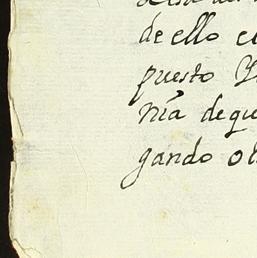 de ello e
puesto Y
nia de qu
gando o